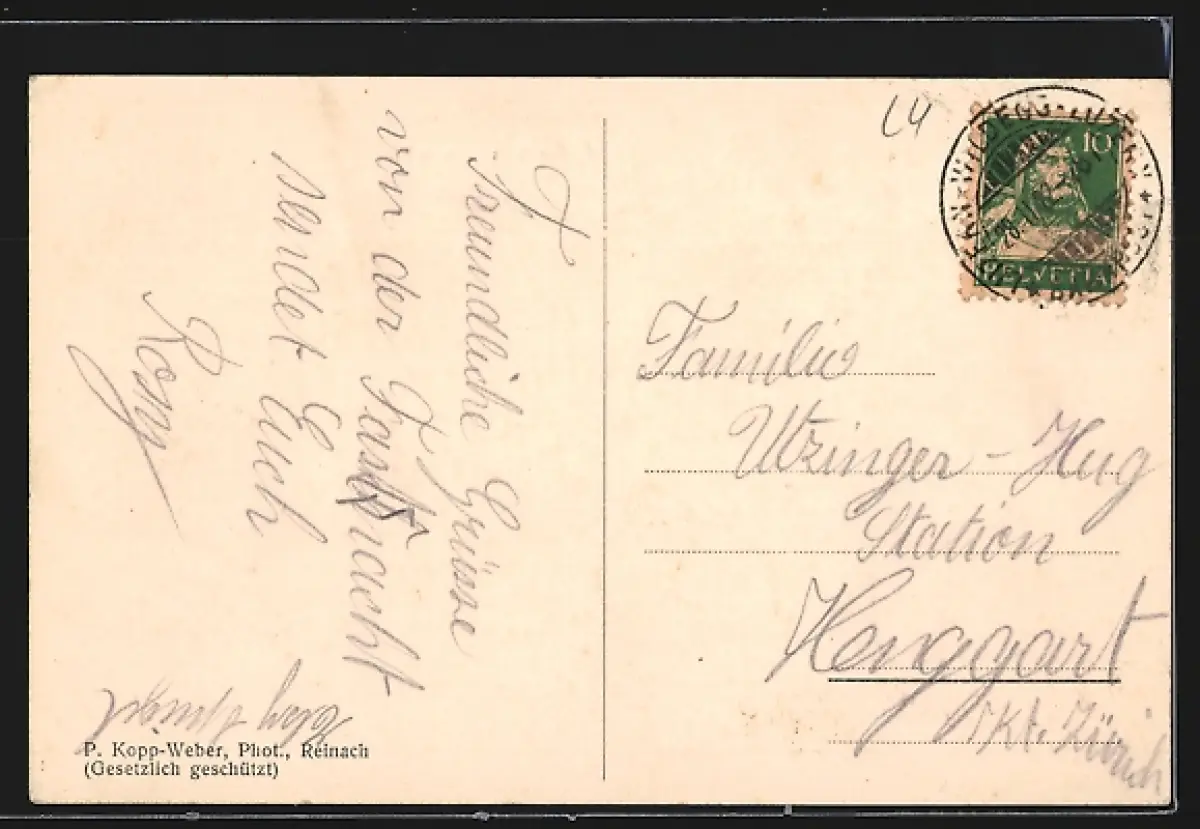 Freundliche Grüsse
von der Fastnacht
sendet Euch
Rosy
P. Kopp-Weber, Phot., Reinach
(Gesetzlich geschützt)
L4
10
HELVETIA
Familie
Utzinger-Hug
Station
Henggart
Kt. Zürich